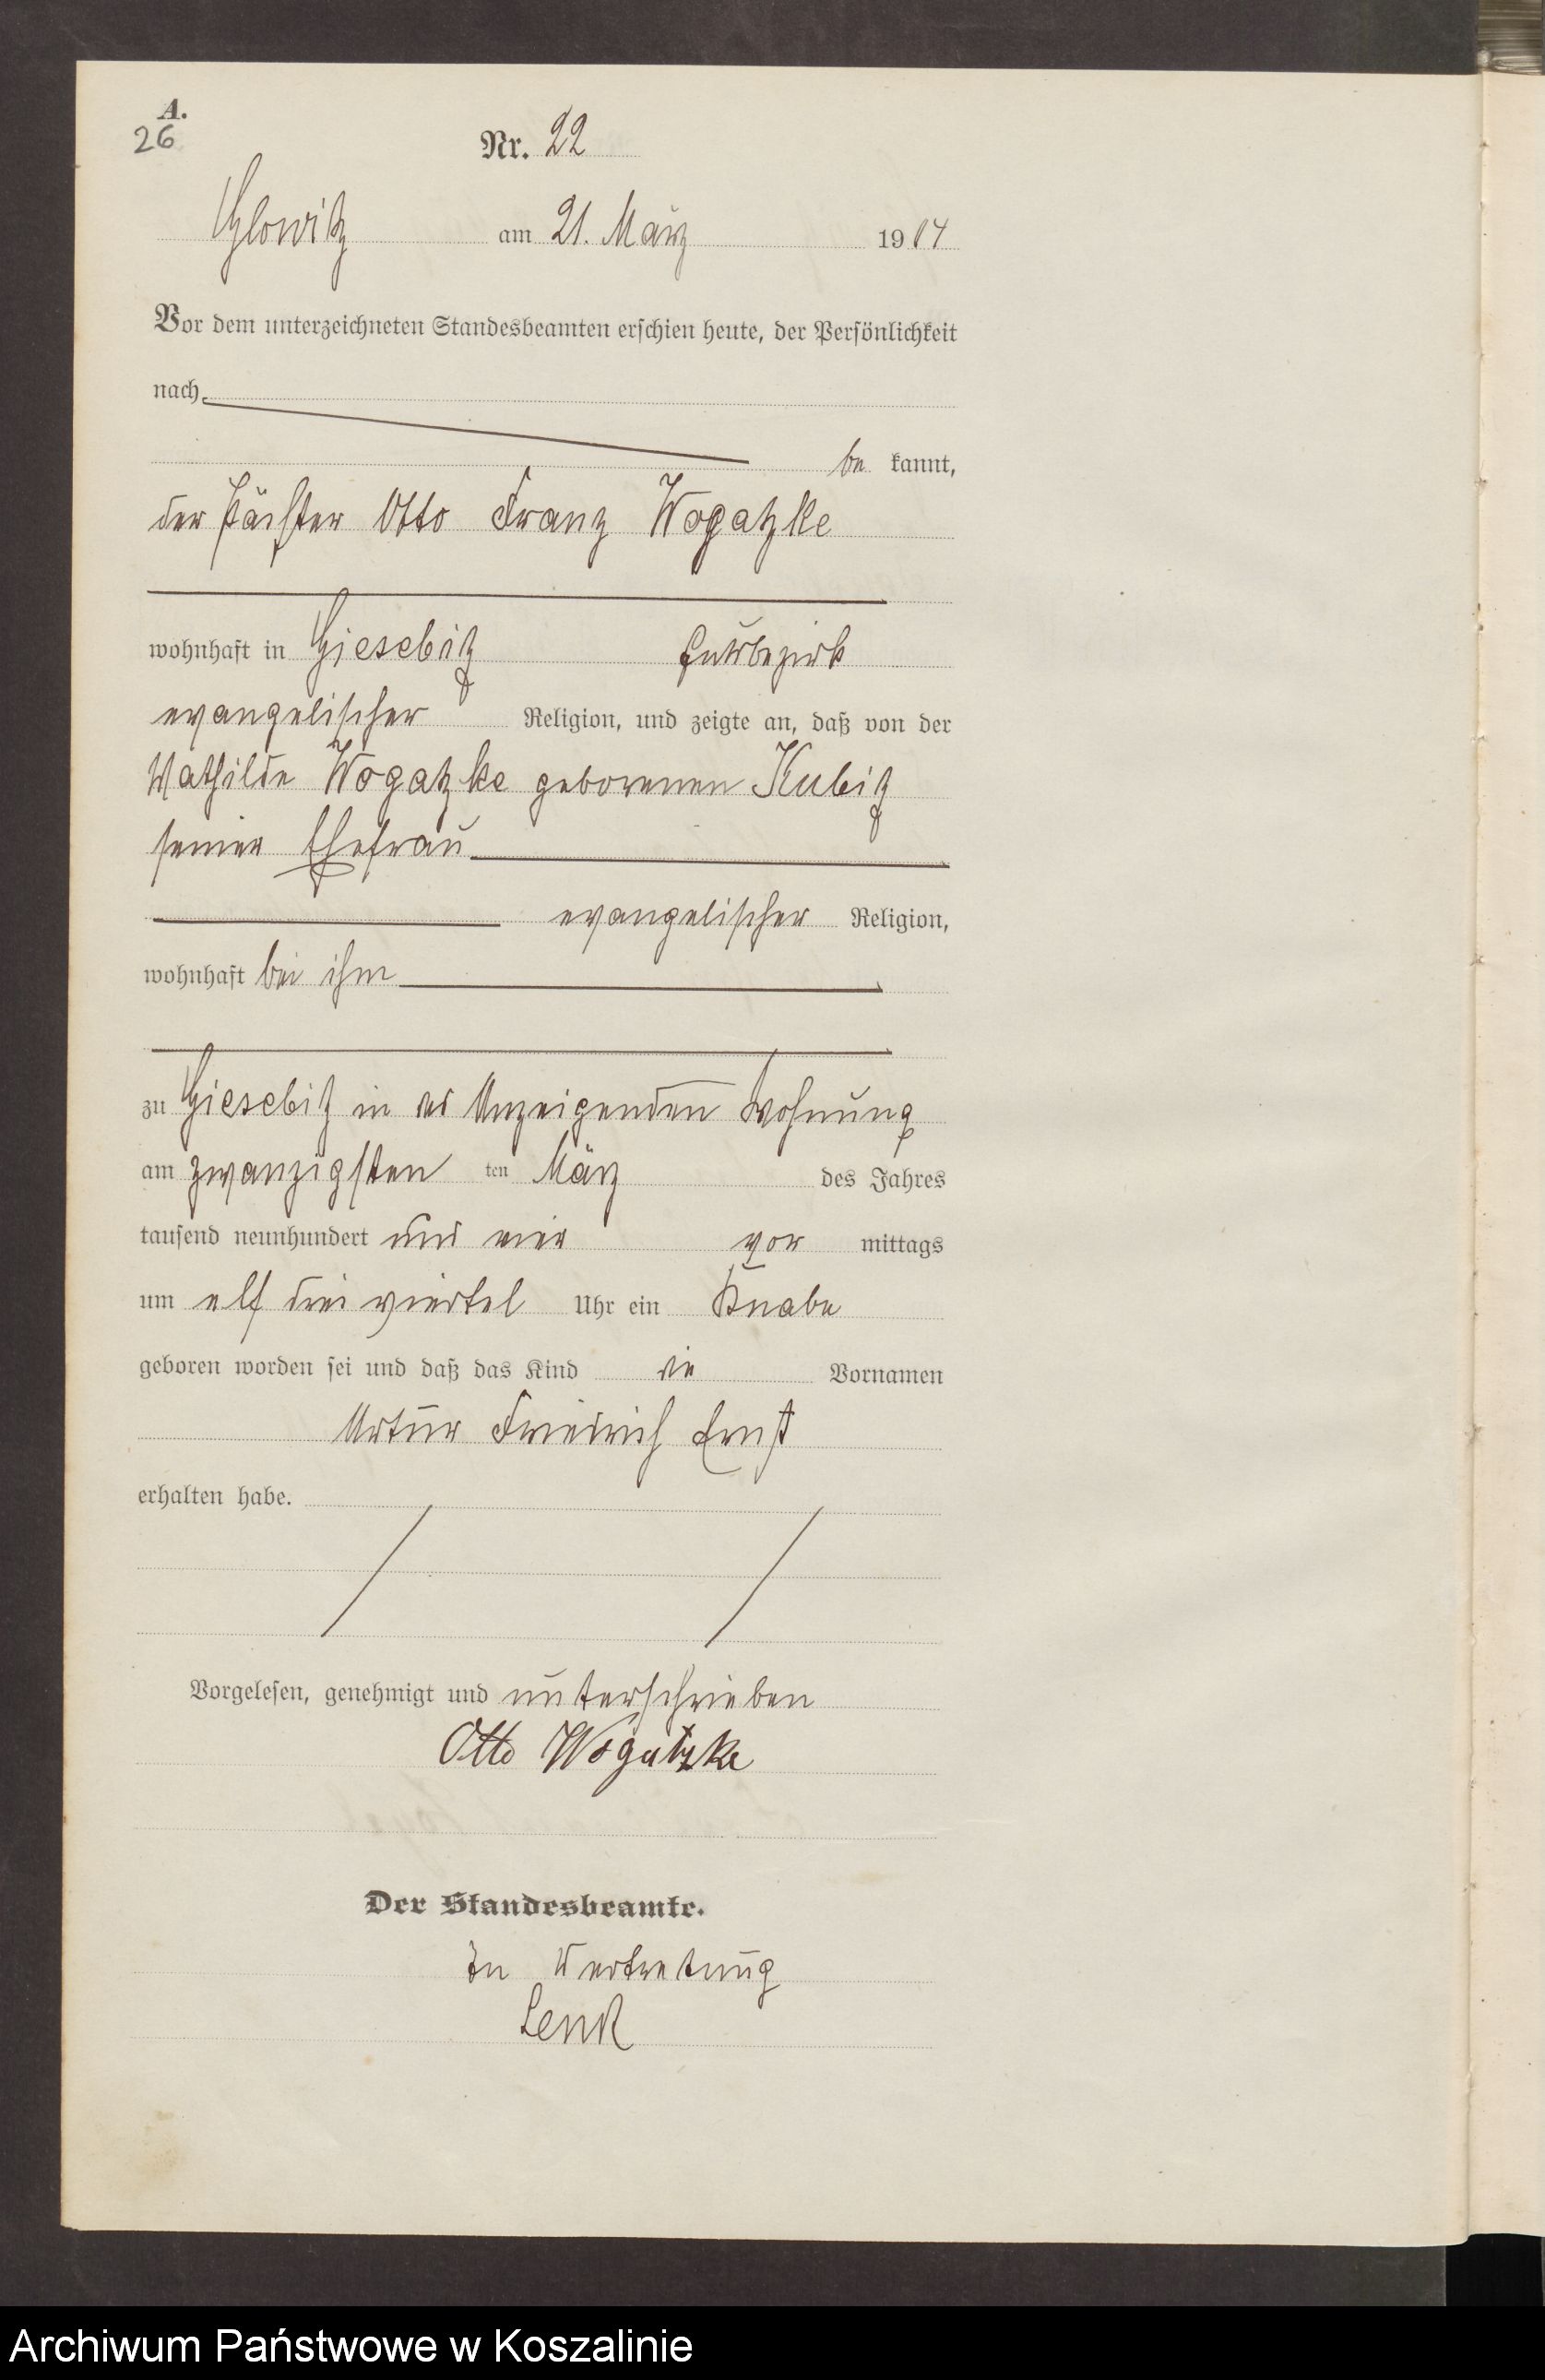 A.
26
Nr. 22
Glowitz am 21. März 1904
Vor dem unterzeichneten Standesbeamten erschien heute, der Persönlichkeit
nach
be kannt,
der Pächter Otto Franz Wogatzke
wohnhaft in Giesebitz Gutsbezirk
evangelischer Religion, und zeigte an, daß von der
Mathilde Wogatzke geborenen Kubitz
seiner Ehefrau
evangelischer Religion,
wohnhaft bei ihm
zu Giesebitz in des Anzeigenden Wohnung
am zwanzigsten ten März des Jahres
tausend neunhundert und vier vor mittags
um elf drei viertel Uhr ein Knabe
geboren worden sei und daß das Kind die Vornamen
Artur Friedrich Ernst
erhalten habe.
Vorgelesen, genehmigt und unterschrieben
Otto Wogatzke
Der Standesbeamte.
In Vertretung
Lenk
Archiwum Państwowe w Koszalinie